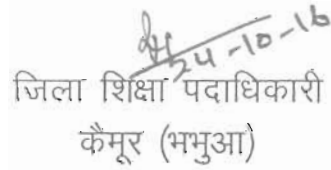 24-10-16
जिला शिक्षा पदाधिकारी
कैमूर (भभुआ)